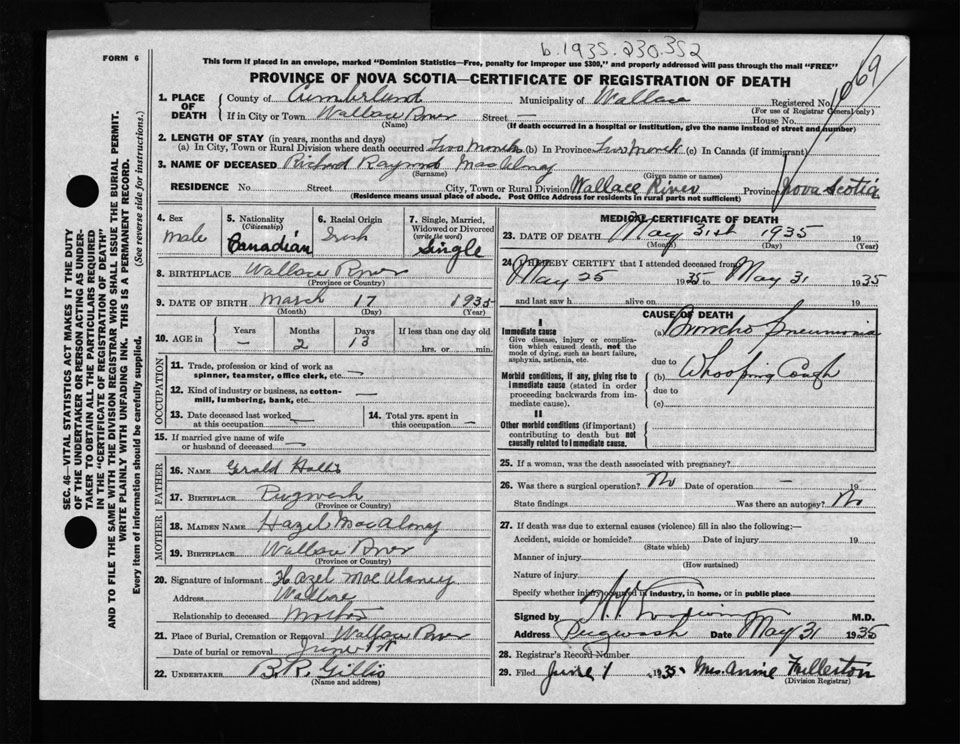 b. 1935. 230.352
FORM 6
This form if placed in an envelope, marked "Dominion Statistics—Free, penalty for improper use $300," and properly addressed will pass through the mail "FREE"
PROVINCE OF NOVA SCOTIA—CERTIFICATE OF REGISTRATION OF DEATH
1. PLACE OF DEATH County of Cumberland Municipality of Wallace Registered No.
(For use of Registrar General only)
If in City or Town Wallace River Street — House No.
(Name) (If death occurred in a hospital or institution, give the name instead of street and number)
2. LENGTH OF STAY (in years, months and days)
(a) In City, Town or Rural Division where death occurred Two Months (b) In Province Two Month (c) In Canada (if immigrant)
3. NAME OF DECEASED Richard Raymond MacAloney
(Surname) (Given name or names)
RESIDENCE No. Street City, Town or Rural Division Wallace River Province Nova Scotia
(Residence means usual place of abode. Post Office Address for residents in rural parts not sufficient)
4. Sex male
5. Nationality (Citizenship) Canadian
6. Racial Origin Irish
7. Single, Married, Widowed or Divorced (write the word) Single
8. BIRTHPLACE Wallace River
(Province or Country)
9. DATE OF BIRTH March 17 1935
(Month) (Day) (Year)
10. AGE in Years — Months 2 Days 13 If less than one day old hrs. or min.
OCCUPATION
11. Trade, profession or kind of work as spinner, teamster, office clerk, etc. —
12. Kind of industry or business, as cotton-mill, lumbering, bank, etc. —
13. Date deceased last worked at this occupation —
14. Total yrs. spent in this occupation —
15. If married give name of wife or husband of deceased —
FATHER
16. NAME Gerald Hollis
17. BIRTHPLACE Pugwash
(Province or Country)
MOTHER
18. MAIDEN NAME Hazel MacAloney
19. BIRTHPLACE Wallace River
(Province or Country)
20. Signature of informant Hazel MacAloney
Address Wallace
Relationship to deceased Mother
21. Place of Burial, Cremation or Removal Wallace River
Date of burial or removal June 1st
22. UNDERTAKER B.R. Gillis
(Name and address)
MEDICAL CERTIFICATE OF DEATH
23. DATE OF DEATH May 31st 1935 19
(Month) (Day) (Year)
24. I HEREBY CERTIFY that I attended deceased from
May 25 1935 to May 31 1935
and last saw h alive on 19
CAUSE OF DEATH
I
Immediate cause
Give disease, injury or complication which caused death, not the mode of dying, such as heart failure, asphyxia, asthenia, etc.
(a) Broncho Pneumonia
due to
Morbid conditions, if any, giving rise to immediate cause (stated in order proceeding backwards from immediate cause).
(b) Whooping Cough
due to
(c)
II
Other morbid conditions (if important) contributing to death but not causally related to immediate cause.
25. If a woman, was the death associated with pregnancy?
26. Was there a surgical operation? No Date of operation — 19
State findings Was there an autopsy? No
27. If death was due to external causes (violence) fill in also the following:—
Accident, suicide or homicide? Date of injury 19
(State which)
Manner of injury
(How sustained)
Nature of injury
Specify whether injury occurred in industry, in home, or in public place
Signed by M.D.
Address Pugwash Date May 31 1935
28. Registrar's Record Number
29. Filed June 1 1935. Mrs. Annie Fullerton
(Division Registrar)
SEC. 46—VITAL STATISTICS ACT MAKES IT THE DUTY
OF THE UNDERTAKER OR PERSON ACTING AS UNDER-
TAKER TO OBTAIN ALL THE PARTICULARS REQUIRED
IN THE "CERTIFICATE OF REGISTRATION OF DEATH"
AND TO FILE THE SAME WITH THE DIVISION REGISTRAR WHO SHALL ISSUE THE BURIAL PERMIT.
WRITE PLAINLY WITH UNFADING INK. THIS IS A PERMANENT RECORD.
Every item of information should be carefully supplied. (See reverse side for instructions.)